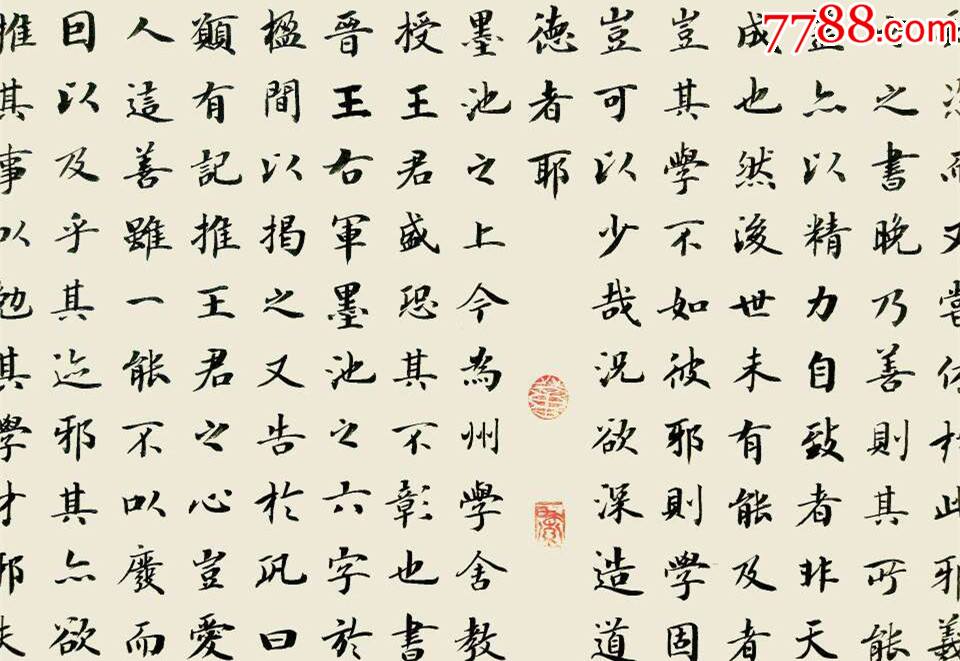 7788.com
恣而又嘗休於此邪羲
之書晚乃善則其所能
蓋亦以精力自致者非天
成也然後世未有能及者
豈其學不如彼邪則學固
豈可以少哉況欲深造道
德者耶
墨池之上今為州學舍教
授王君盛恐其不彰也書
晉王右軍墨池之六字於
楹間以揭之又告於巩曰
願有記推王君之心豈愛
人這善雖一能不以廢而
因以及乎其迹邪其亦欲
推其事以勉其學才邪夫